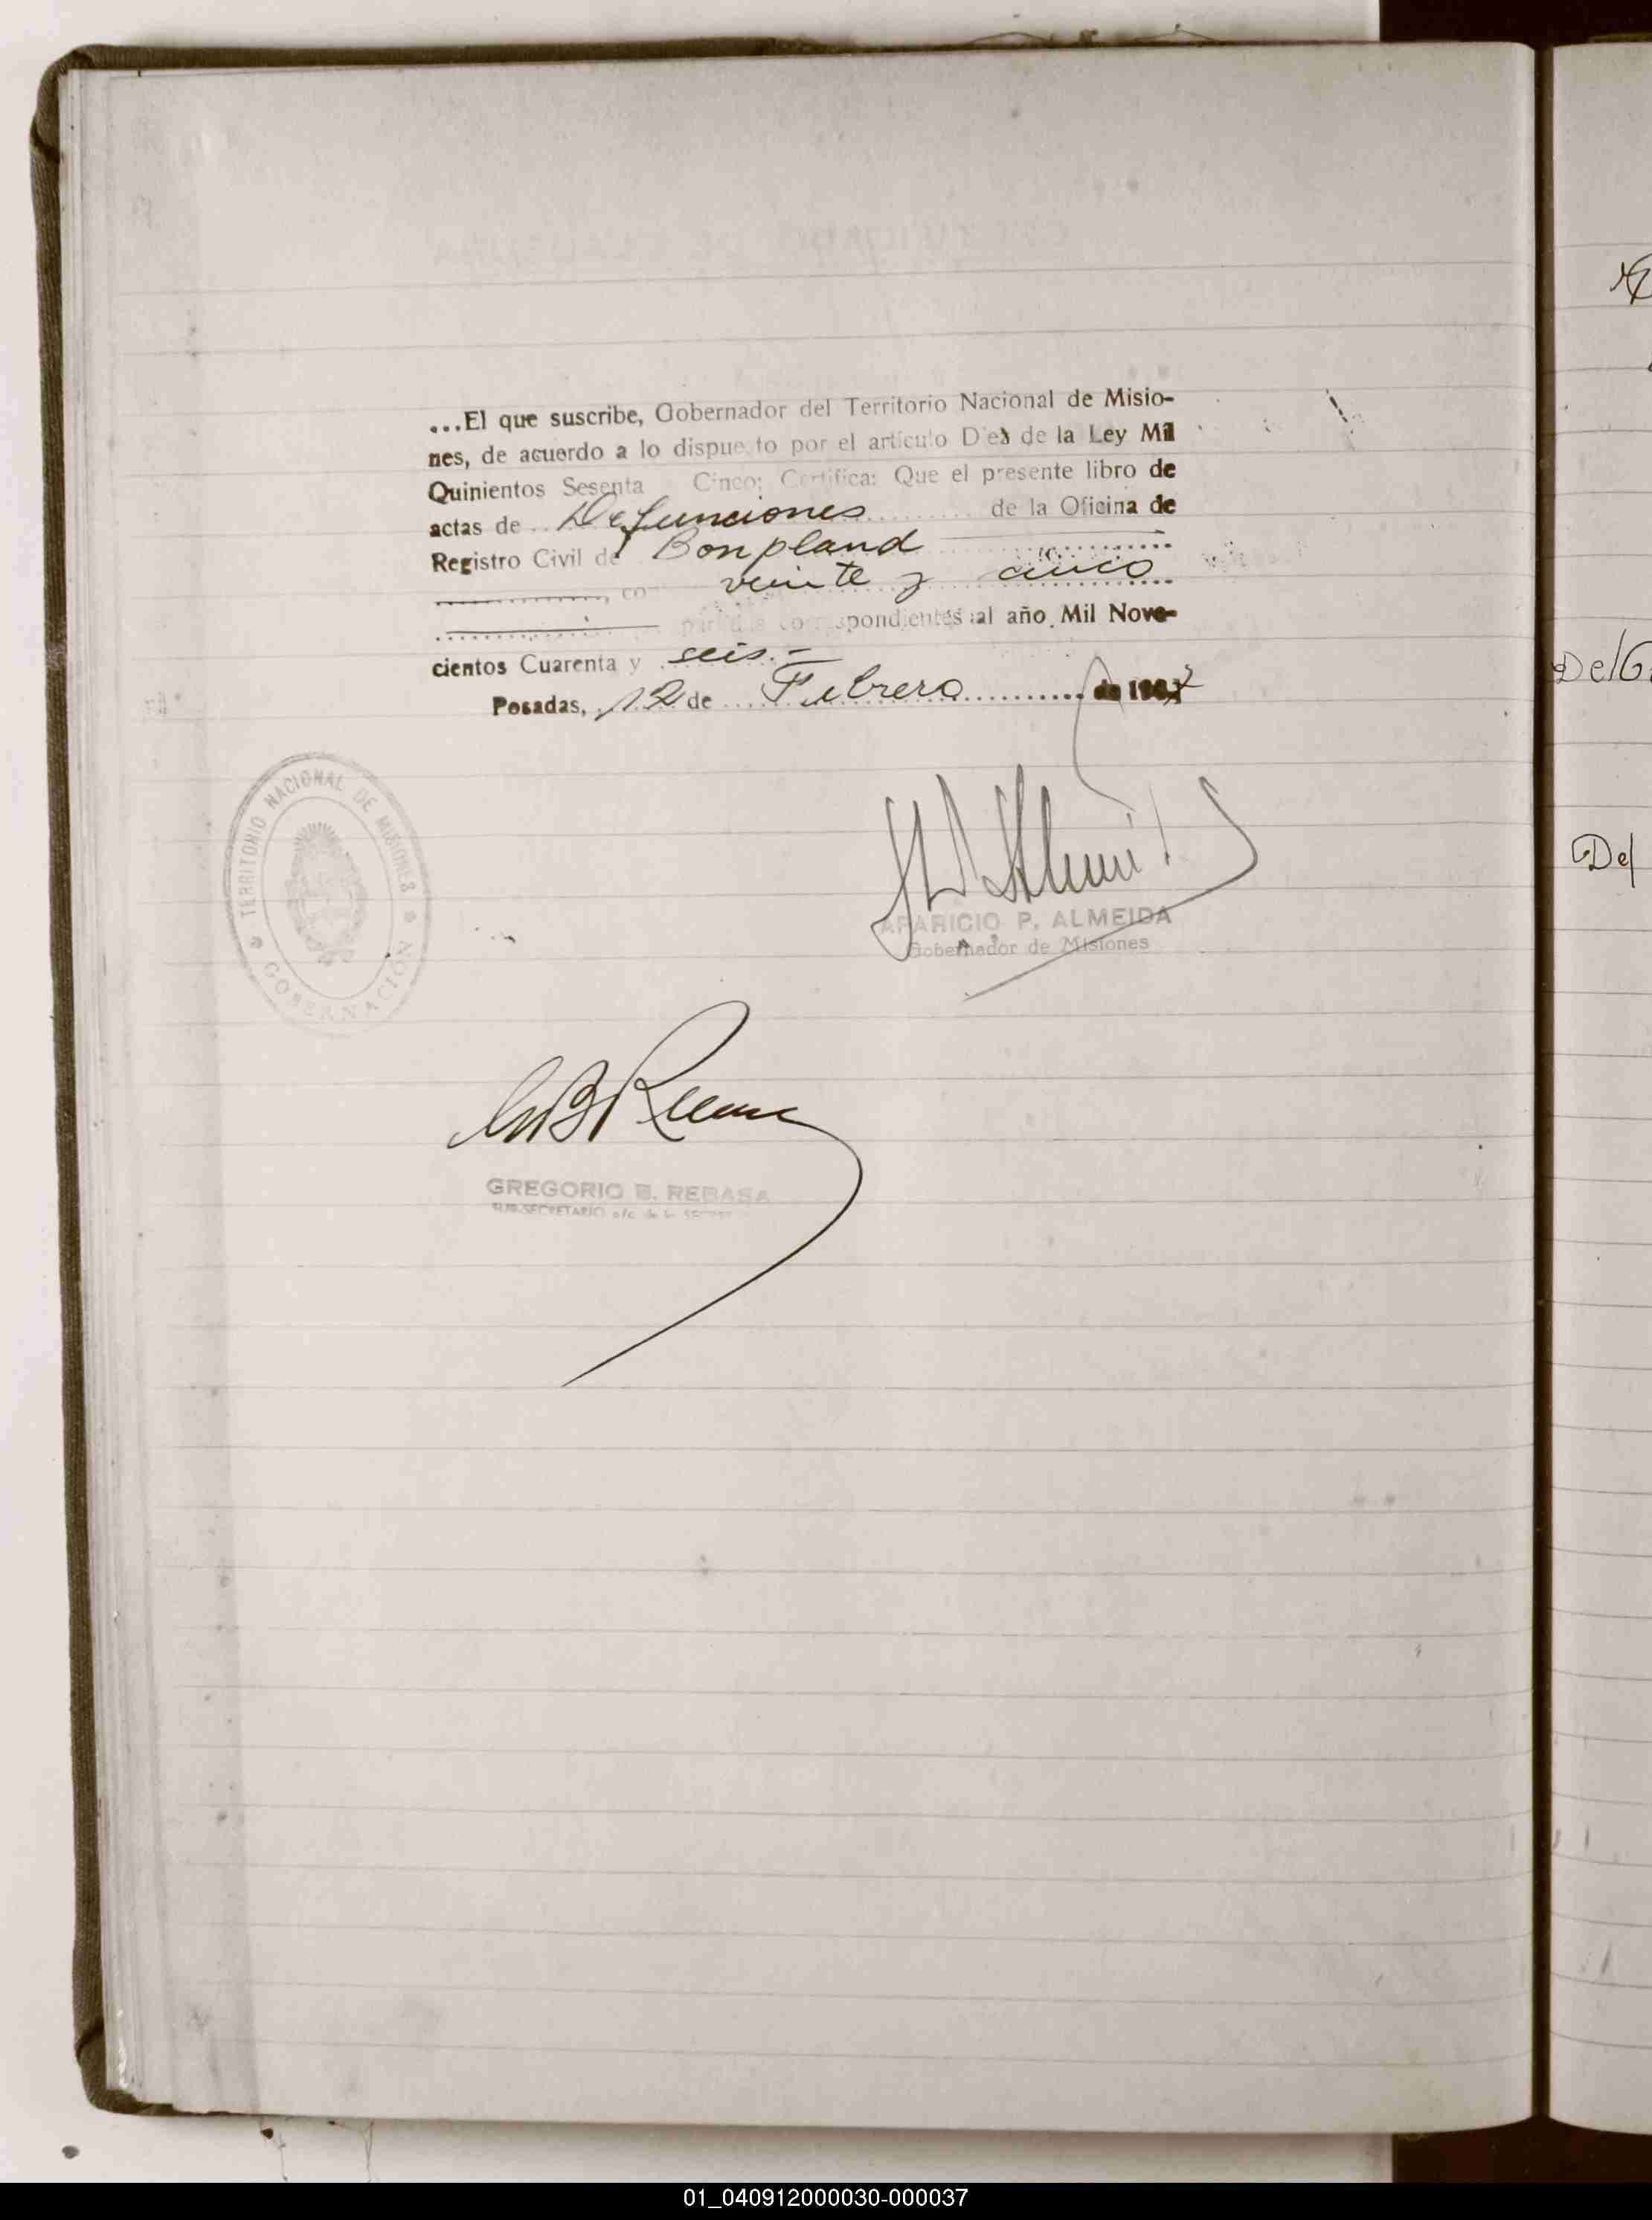 ...El que suscribe, Gobernador del Territorio Nacional de Misio-
nes, de acuerdo a lo dispuesto por el artículo Diez de la Ley Mil
Quinientos Sesenta Cinco; Certifica: Que el presente libro de
actas de Defunciones de la Oficina de
Registro Civil de Bonpland
, con veinte y cinco
partidas correspondientes al año Mil Nove-
cientos Cuarenta y seis.-
Posadas, 12 de Febrero de 1947
TERRITORIO NACIONAL DE MISIONES
GOBERNACIÓN
APARICIO P. ALMEIDA
Gobernador de Misiones
GREGORIO B. REBASA
SUB-SECRETARIO
Del
01_040912000030-000037